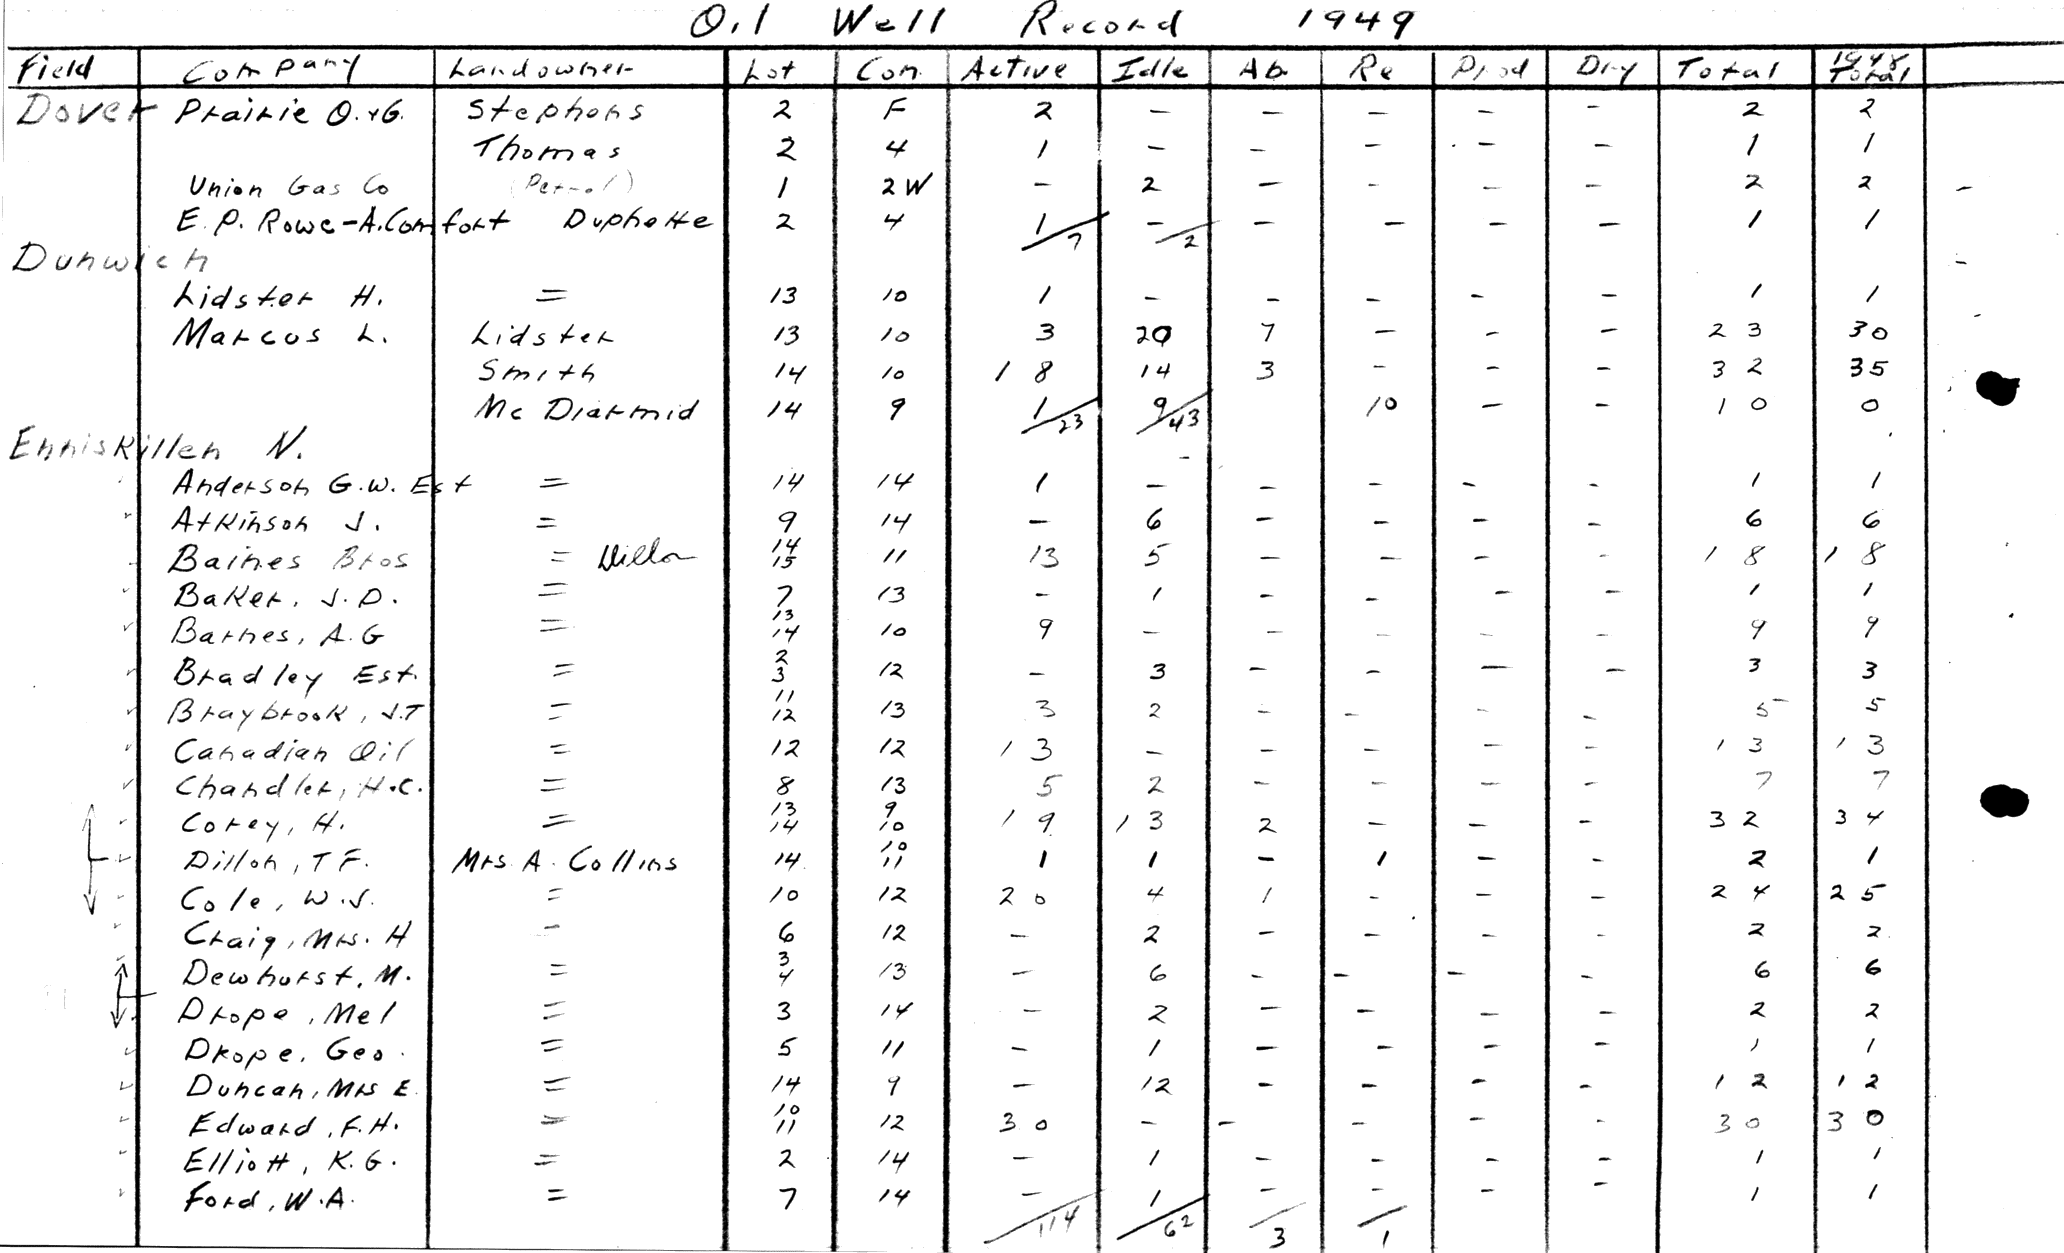 Oil Well Record 1949
Field Company Landowner Lot Con. Active Idle Ab. Re Prod Dry Total 1948 Total
Dover Prairie O.+G. Stephens 2 F 2 — — — — — 2 2
Thomas 2 4 1 — — — — — 1 1
Union Gas Co (Petrol) 1 2W — 2 — — — — 2 2
E. P. Rowe-A.Comfort 2 4 1/7 —/2 — — — — 1 1
Dunwich
Lidster H. = 13 10 1 — — — — — 1 1
Marcus L. Lidster 13 10 3 20 7 — — — 23 30
Smith 14 10 18 14 3 — — — 32 35
Mc Diarmid 14 9 1/23 9/43 10 — — 10 0
Enniskillen N.
Anderson G.W. Est = 14 14 1 — — — — — 1 1
Atkinson J. = 9 14 — 6 — — — — 6 6
Baines Bros = 14 15 11 13 5 — — — — 18 18
Baker, J.D. = 7 13 — 1 — — — — 1 1
Barnes, A.G = 13 14 10 9 — — — — — 9 9
Bradley Est. = 2 3 12 — 3 — — — — 3 3
Braybrook, J.T = 11 12 13 3 2 — — — — 5 5
Canadian Oil = 12 12 13 — — — — — 13 13
Chandler, H.C. = 8 13 5 2 — — — — 7 7
Corey, H. = 13 14 9 10 19 13 2 — — — 32 34
Dillon, T F. Mrs. A. Collins 14 10 11 1 1 — 1 — — 2 1
Cole, W.J. = 10 12 20 4 1 — — — 24 25
Craig, Mrs. H = 6 12 — 2 — — — — 2 2
Dewhurst, M. = 3 4 13 — 6 — — — — 6 6
Drope, Mel = 3 14 — 2 — — — — 2 2
Drope, Geo. = 5 11 — 1 — — — — 1 1
Duncan, Mrs E. = 14 9 — 12 — — — — 12 12
Edward, F.H. = 10 11 12 30 — — — — — 30 30
Elliott, K.G. = 2 14 — 1 — — — — 1 1
Ford, W.A. = 7 14 — 1 — — — — 1 1
114 62 3 1